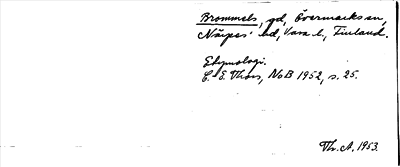 Brommels, gd, Övermarks sn,
Närpes hd, Vasa l., Finland.
Etymologi.
C. E. Thors, NoB 1952, s. 25.
Th. A. 1953.